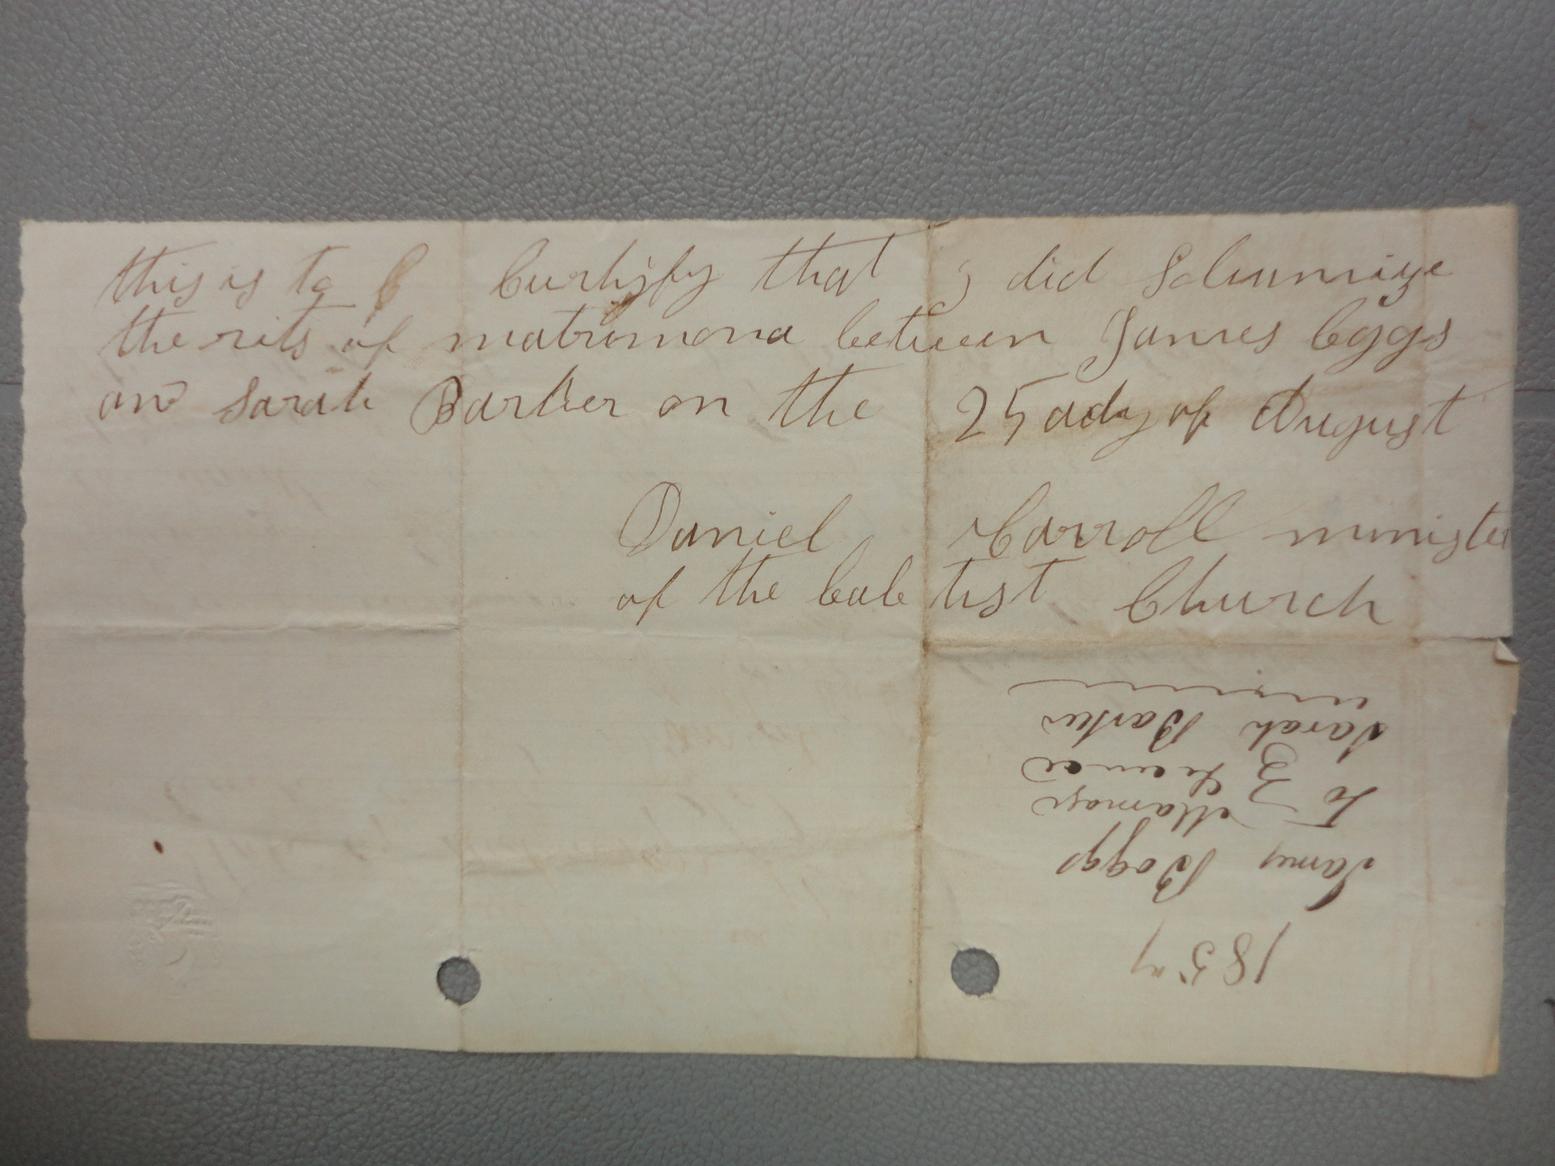 this is to C Curtiffy that I did Solumnize
the rits of matrimona between James Coggs
and Sarah Barker on the 25 ady of August
Daniel Carroll minister
of the babtist Church
1857
James Boggs
To } Marriage
License
Sarah Barker